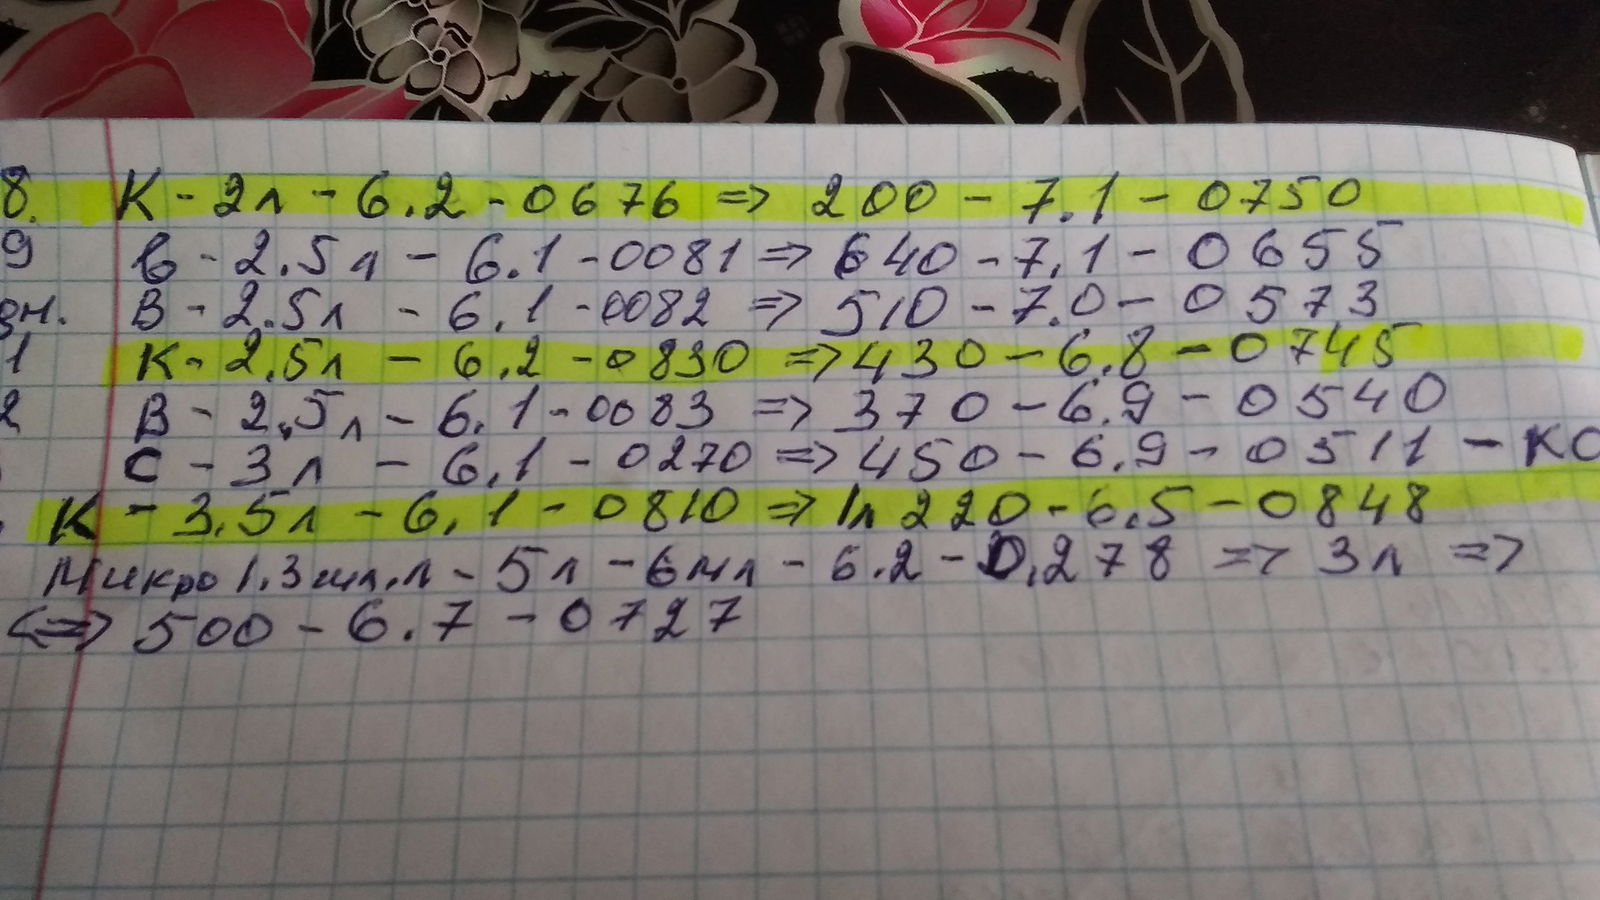 8. К - 2л - 6.2 - 0676 => 200 - 7.1 - 0750
9 В - 2.5л - 6.1 - 0081 => 640 - 7.1 - 0655
вн. В - 2.5л - 6.1 - 0082 => 510 - 7.0 - 0573
1 К - 2.5л - 6.2 - 0830 => 430 - 6.8 - 0745
2 В - 2.5л - 6.1 - 0083 => 370 - 6.9 - 0540
С - 3л - 6.1 - 0270 => 450 - 6.9 - 0511 - КО
К - 3.5л - 6.1 - 0810 => 1л 220 - 6.5 - 0848
Микро 1.3мл.л - 5л - 6мл - 6.2 - 0.278 => 3л =>
<=> 500 - 6.7 - 0727